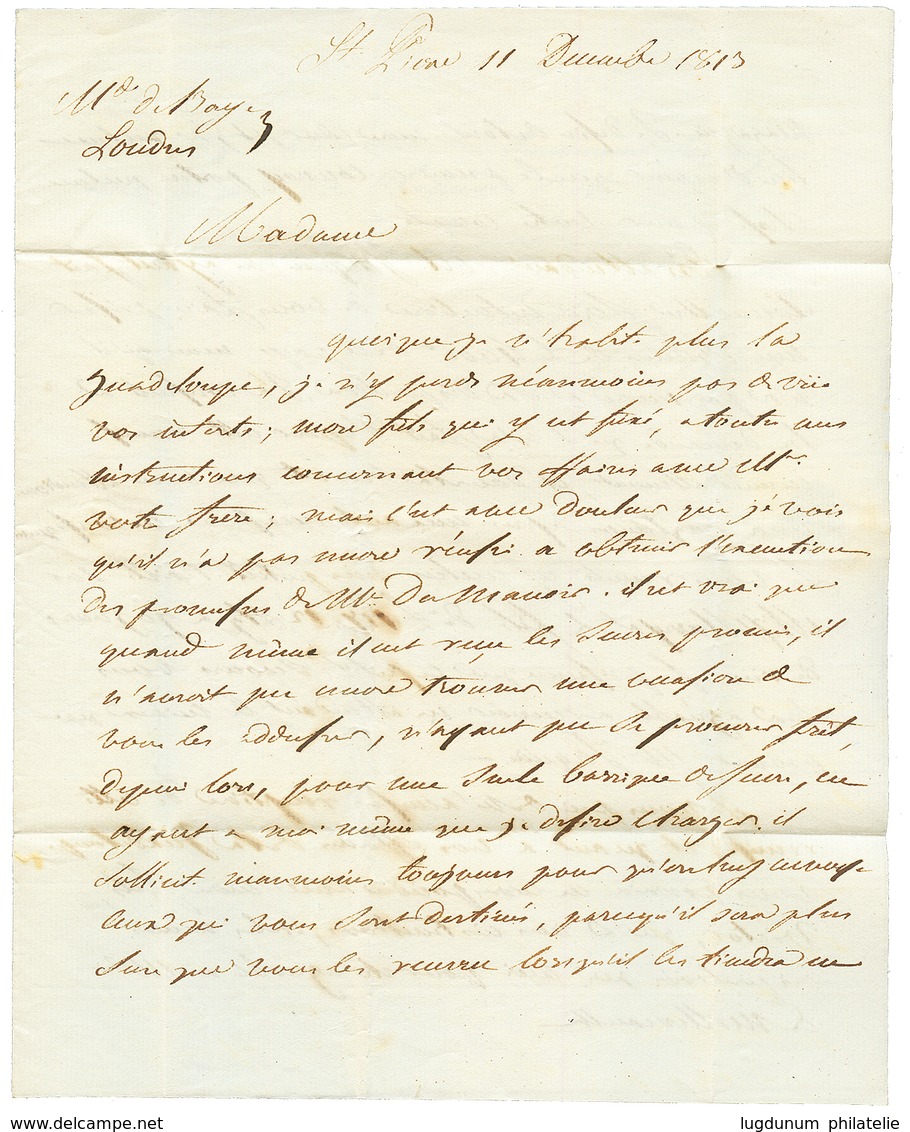 St Pierre 11 Decembre 1813
Mde de Baye
Londres
Madame
quoique je n'habite plus la
Guadeloupe, je n'y perds néanmoins pas de vüe
vos interets; mon fils qui y est fixé, a toutes mes
instructions concernant vos affaires avec Mr.
votre frere; mais c'est avec douleur que je vois
qu'il n'a pas encore réussi a obtenir l'execution
des promesses de Mr. Du Manoir. il est vrai que
quand même il eut reçu les sucres promis, il
n'auroit pu encore trouver une occasion de
vous les adresser, n'ayant pu se procurer fret,
depuis lors, pour une seule barrique de sucre, en
ayant a moi même que je desire charger. il
sollicite néanmoins toujours pour qu'on luy envoye
ceux qui vous sont destinés, parcequ'il sera plus
sur que vous les recevrez lorsqu'il les tiendra en
www.delcampe.net
lugdunum philatelie